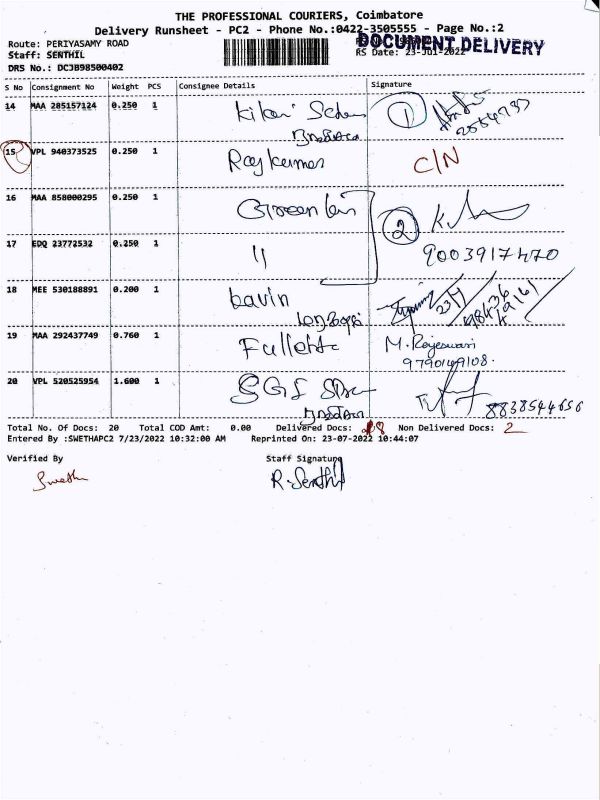 THE PROFESSIONAL COURIERS, Coimbatore
Delivery Runsheet - PC2 - Phone No.:0422-3505555 - Page No.:2
Route: PERIYASAMY ROAD
DOCUMENT DELIVERY
Staff: SENTHIL
RS Date: 23-Jul-2022
DRS No.: DCJB98500402
S No Consignment No Weight PCS Consignee Details Signature
14 MAA 285157124 0.250 1 1
15 VPL 940373525 0.250 1 Rajkumar C/N
16 MAA 858000295 0.250 1 2
17 EDQ 23772532 0.250 1 11 9003917470
18 MEE 530188891 0.200 1 Lavin 23/7
19 MAA 292437749 0.760 1 M. Rajeswari
9790149108.
20 VPL 520525954 1.600 1 SGS
8838544656
Total No. Of Docs: 20 Total COD Amt: 0.00 Delivered Docs: 18 Non Delivered Docs: 2
Entered By :SWETHAPC2 7/23/2022 10:32:00 AM Reprinted On: 23-07-2022 10:44:07
Verified By Staff Signature
Swetha R. Senthil